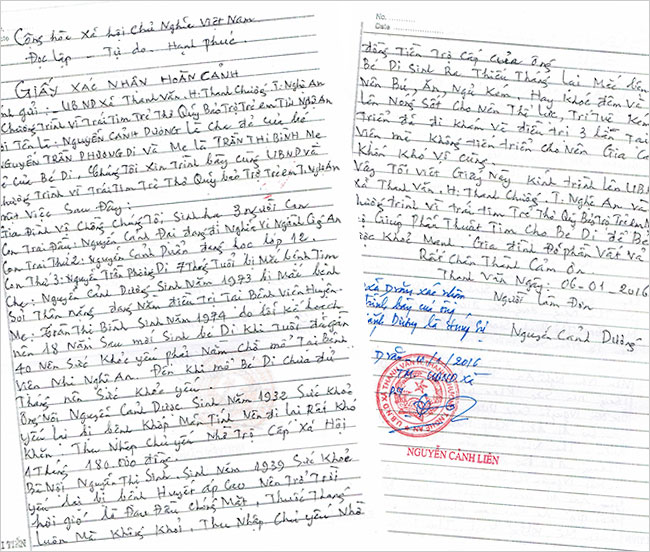 Cộng hòa Xã hội Chủ Nghĩa Việt Nam
Độc lập - Tự do - Hạnh phúc
GIẤY XÁC NHÂN HOÀN CẢNH
gửi: - UBND Xã Thanh Văn, H. Thanh Chương, T. Nghệ An
Chương Trình Vì Trái Tim Trẻ Thơ Quỹ Bảo Trợ Trẻ em Tỉnh Nghệ An
Tên Là: NGUYỄN CẢNH DƯƠNG Là Cha đẻ của bé
NGUYỄN TRẦN PHƯƠNG DI Và Mẹ là TRẦN THỊ BÌNH Mẹ
của Bé Di, Chúng Tôi Xin Trình bày Cùng UBND Và
Chương Trình Vì trái Tim Trẻ Thơ Quỹ bảo Trợ Trẻ em T. Nghệ An
Việc Sau Đây:
Gia Đình Vợ Chồng Chúng Tôi Sinh ra 3 người Con
Con Trai Đầu: Nguyễn Cảnh Đại đang đi Nghĩa Vụ Ngành Công An
Con Trai Thứ 2: Nguyễn Cảnh Duẩn đang học lớp 12.
Con Thứ 3: Nguyễn Trần Phương Di 7 Tháng Tuổi bị Mắc bệnh Tim
Cha: Nguyễn Cảnh Dương Sinh Năm 1973 bị Mắc bệnh
Sỏi Thận Nặng đang Nằm điều Trị Tại Bệnh Viện Huyện
Mẹ: Trần Thị Bình Sinh Năm 1974 do lỡ kế hoạch
nên 18 Năm Sau mới Sinh bé Di Khi Tuổi đã gần
40 Nên Sức Khỏe yếu phải Nằm Chờ mổ Tại Bệnh
Viện Nhi Nghệ An. Đến khi mổ Bé Di Chưa đủ
Tháng nên Sức Khỏe yếu
Ông Nội Nguyễn Cảnh Dược Sinh Năm 1932 Sức Khỏe
yếu lại bị bệnh Khớp Mãn Tính Nên đi lại Rất Khó
Khăn, Thu Nhập Chủ yếu Nhờ Trợ Cấp Xã Hội
1 Tháng 180.000 đồng.
Bà Nội Nguyễn Thị Sinh, Sinh Năm 1939 Sức Khỏe
yếu lại bị bệnh Huyết áp Cao Nên Trở Trời
hơi gió là Đau Đầu Chóng Mặt, Thuốc Thang
luôn Mà Không Khỏi, Thu Nhập Chủ yếu Nhờ
No.
Date
đồng Tiền Trợ Cấp Của Ông
Bé Di Sinh Ra Thiếu Tháng lại Mắc bệnh
Nên Bú, Ăn, Ngủ Kém, Hay Khóc đêm Và
lên Nóng Sốt Cho Nên Thể lực, Trí Tuệ Kém
triển đã đi khám Và điều trị 3 lần Tại
Viện mà Không tiến triển Cho Nên Gia Cảnh
Khốn Khó Vô Cùng.
Vậy Tôi Viết Giấy Này Kính trình lên UBND
xã Thanh Văn, H. Thanh Chương, T. Nghệ An Và
Chương Trình Vì trái tim Trẻ Thơ Quỹ Bảo Trợ Trẻ em
Giúp Phẫu Thuật Tim Cho Bé Di để Bé
Sức Khỏe Mạnh. Gia đình Đỡ phần Vất Vả
Rất Chân Thành Cảm Ơn.
Thanh Văn Ngày: 06-01-2016
Người Làm Đơn
Nguyễn Cảnh Dương
xác nhận
trình bày của ông
Dương là đúng sự
2016
TM. UBND Xã
NGUYỄN CẢNH LIÊN